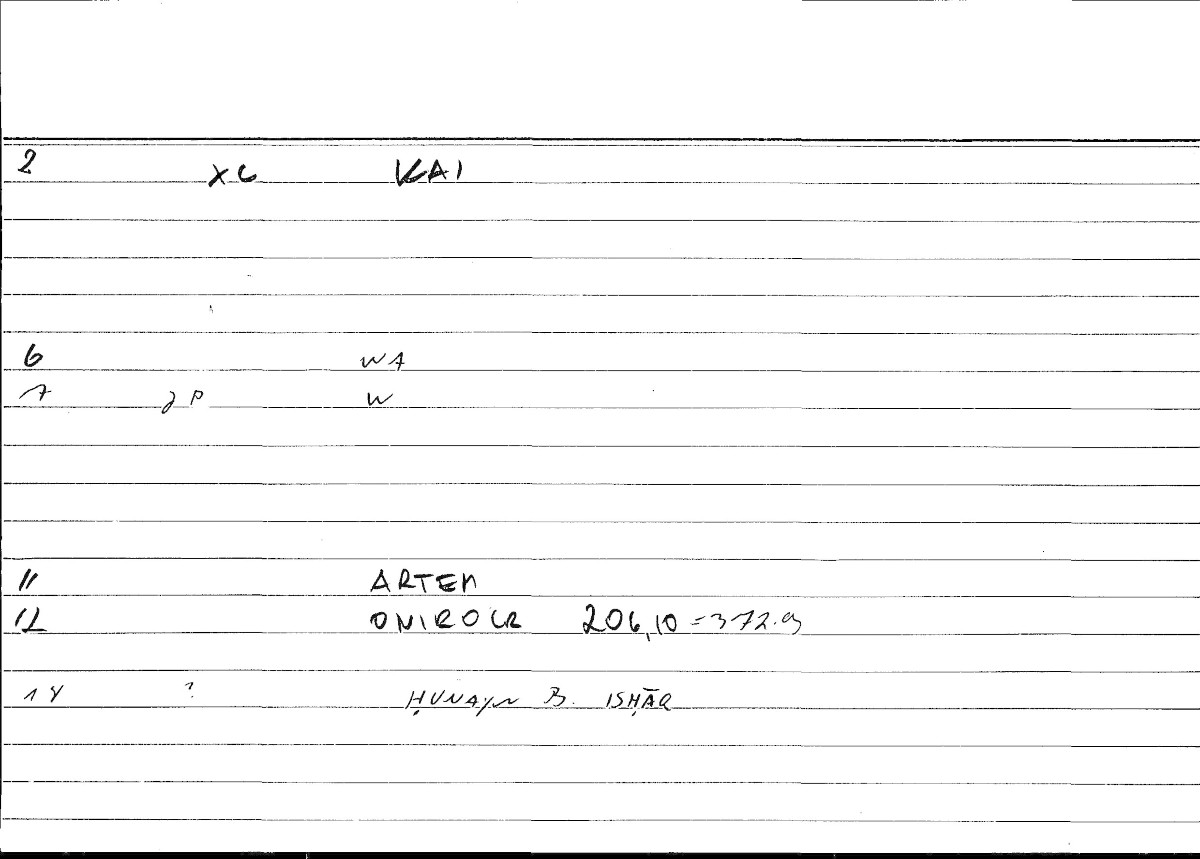 2 XC KAI
6 WA
7 JP W
11 ARTEM
12 ONIROCR 206,10 = 372.9
14 ? ḤUNAYN B. ISḤĀQ